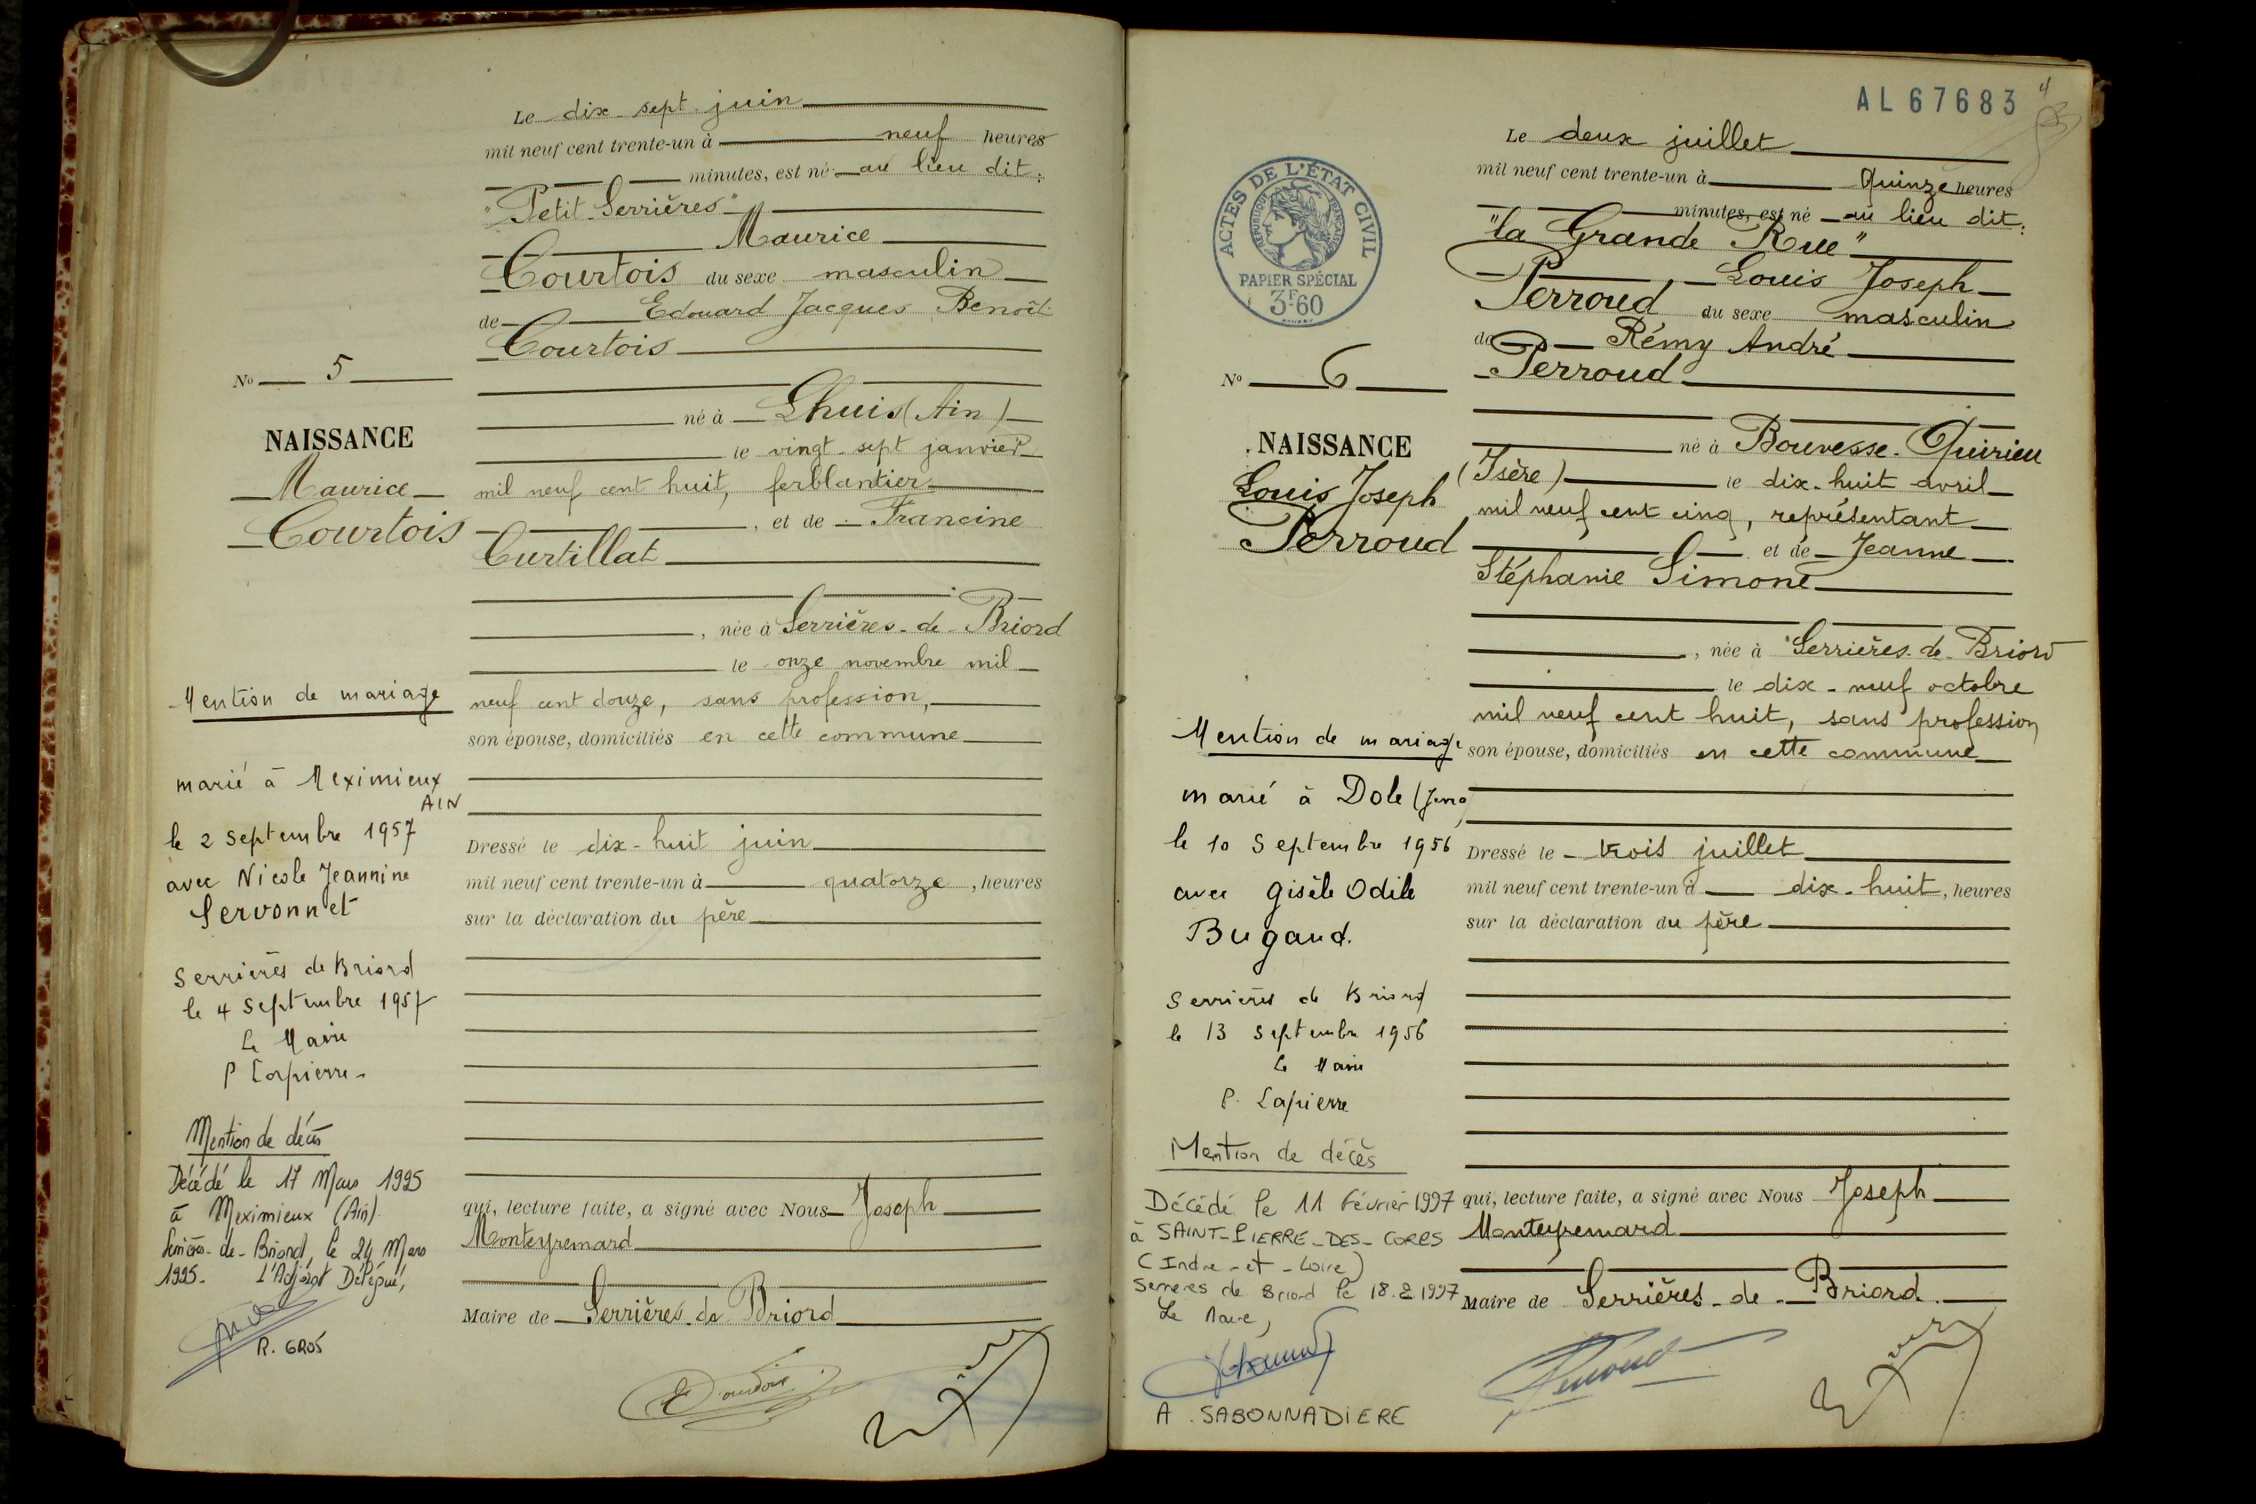 Le dix-sept juin
mil neuf cent trente-un à neuf heures
minutes, est né au lieu dit:
"Petit-Serrières"
Maurice
Courtois du sexe masculin
de Edouard Jacques Benoît
Courtois
né à Lhuis (Ain)
le vingt-sept janvier
mil neuf cent huit, ferblantier
, et de Francine
Curtillat
, née à Serrières-de-Briord
le onze novembre mil
neuf cent douze, sans profession,
son épouse, domiciliés en cette commune
Dressé le dix-huit juin
mil neuf cent trente-un à quatorze, heures
sur la déclaration du père
qui, lecture faite, a signé avec Nous Joseph
Monteyremard
Maire de Serrières-de-Briord
No 5
NAISSANCE
Maurice
Courtois
Mention de mariage
marié à Meximieux
AIN
le 2 septembre 1957
avec Nicole Jeannine
Servonnet
Serrières de Briord
le 4 Septembre 1957
Le Maire
P Lapierre
Mention de décès
Décédé le 17 Mars 1995
à Meximieux (Ain)
Serrières-de-Briord, le 24 Mars
1995. L'Adjoint Délégué,
R. GROS
AL67683
4
Le deux juillet
mil neuf cent trente-un à Quinze heures
minutes, est né au lieu dit:
"la Grande Rue"
Louis Joseph
Perroud du sexe masculin
de Rémy André
Perroud
né à Bouvesse-Quirieu
(Isère) le dix-huit avril
mil neuf cent cinq, représentant
et de Jeanne
Stéphanie Simone
, née à Serrières-de-Briord
le dix-neuf octobre
mil neuf cent huit, sans profession
son épouse, domiciliés en cette commune
Dressé le trois juillet
mil neuf cent trente-un à dix-huit, heures
sur la déclaration du père
qui, lecture faite, a signé avec Nous Joseph
Monteyremard
Maire de Serrières-de-Briord
ACTES DE L'ÉTAT CIVIL
RÉPUBLIQUE FRANÇAISE
PAPIER SPÉCIAL
3F60
No 6
NAISSANCE
Louis Joseph
Perroud
Mention de mariage
marié à Dole (Jura)
le 10 Septembre 1956
avec Gisèle Odile
Bugaud.
Serrières de Briord
le 13 Septembre 1956
Le Maire
P. Lapierre
Mention de décès
Décédé le 11 Février 1997
à SAINT-PIERRE-DES-CORPS
(Indre-et-Loire)
Serrières de Briord le 18.2.1997
Le Maire,
A. SABONNADIERE